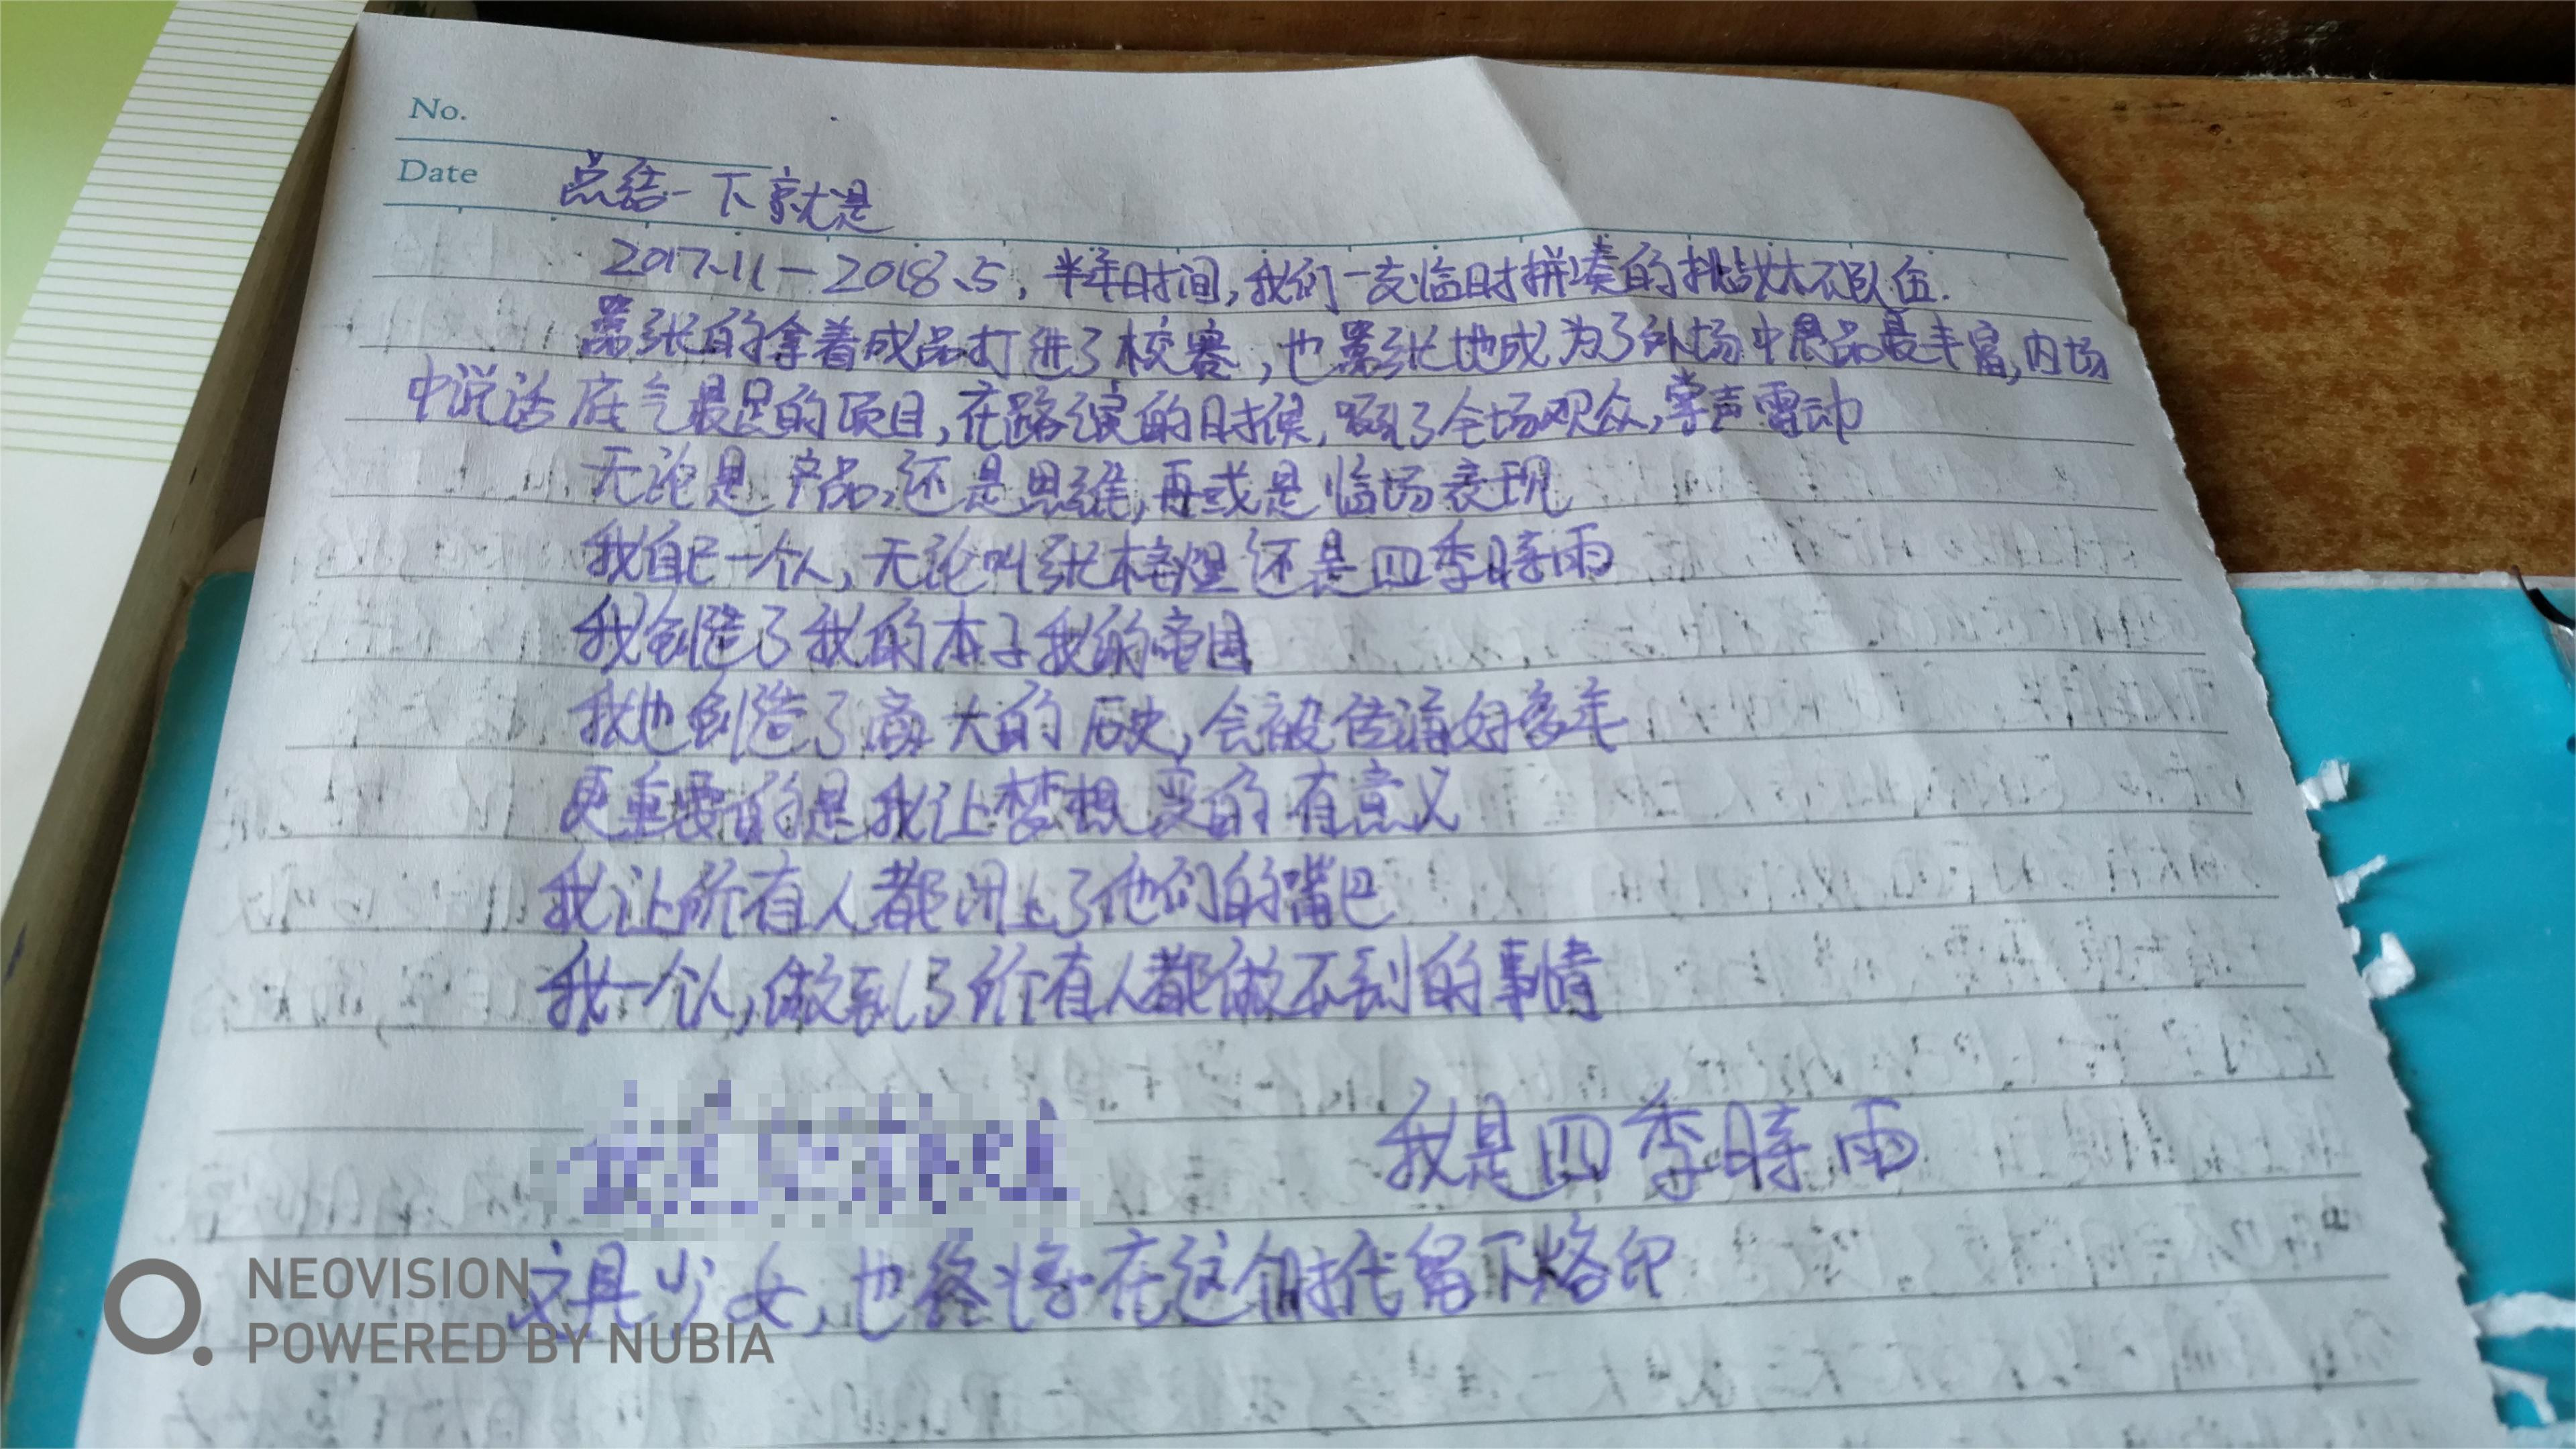 No.
Date
总结一下就是
2017、11-2018、5,半年时间,我们一支临时拼凑的挑战杯队伍.
嚣张的拿着成品打进了校赛,也嚣张地成为了外场中展品最丰富,内场
中说话底气最足的项目,在路演的时候,了全场观众,掌声雷动
无论是产品,还是思维,再或是临场表现
我自己一个人,无论叫张还是四季時雨
我创造了我的本子我的帝国
我也创造了商大的历史,会被传诵好多年
更重要的是我让梦想变的有意义
我让所有人都闭上了他们的嘴巴
我一个人,做到了所有人都做不到的事情
我是四季時雨
文具少女,也终将在这个时代留下烙印
NEOVISION
POWERED BY NUBIA